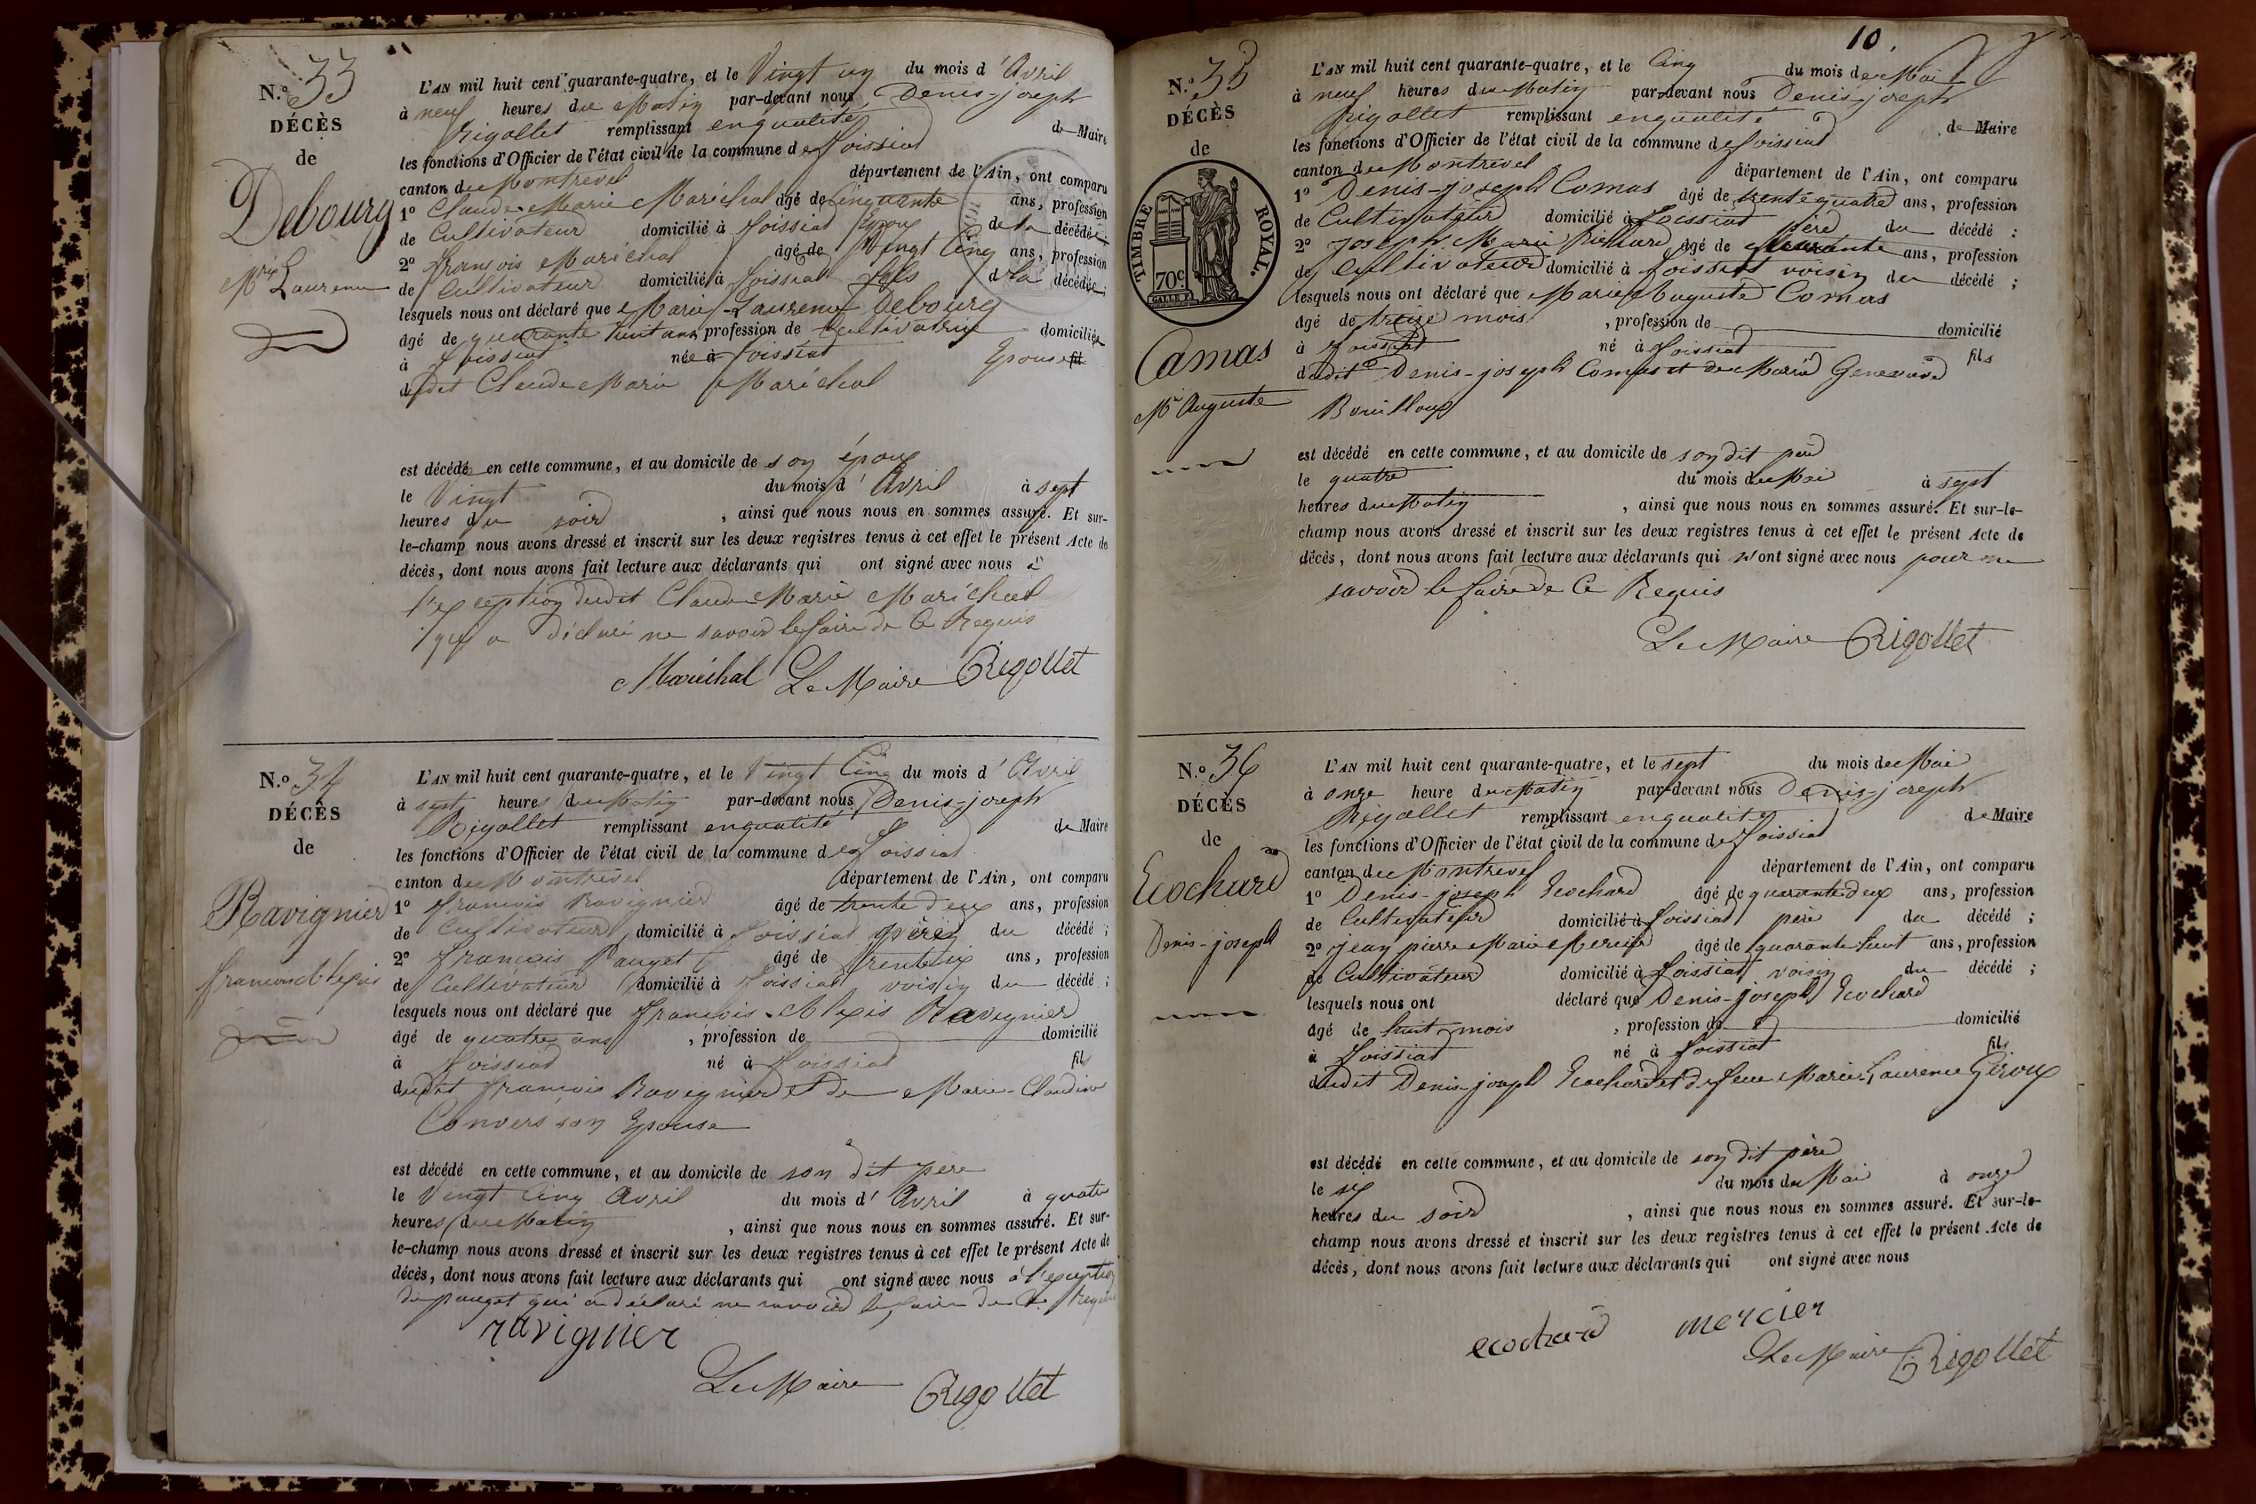 N.º 33
DÉCÈS
de
Debourg
Mie Laurence
L'AN mil huit cent quarante-quatre, et le Vingt un du mois d'Avril
à neuf heures du Matin par-devant nous Denis-joseph
Rigollet remplissant enqualité de Maire
les fonctions d'Officier de l'état civil de la commune de foissiat
canton du Montrevel département de l'Ain, ont comparu
1º Claude-Marie Maréchal âgé de Cinquante ans, profession
de Cultivateur domicilié à foissiat Epoux de la décédée;
2º françois Maréchal âgé de Vingt Cinq ans, profession
de Cultivateur domicilié à foissiat fils d la décédée;
lesquels nous ont déclaré que Marie-Laurence Debourg
âgé de quarante huit ans profession de Cultivatrice domiciliée
à foissiat née à foissiat Epouse
dudit Claude Marie Maréchal
est décédé en cette commune, et au domicile de son époux
le Vingt du mois d'Avril à sept
heures du soir, ainsi que nous nous en sommes assuré. Et sur-
le-champ nous avons dressé et inscrit sur les deux registres tenus à cet effet le présent Acte de
décès, dont nous avons fait lecture aux déclarants qui ont signé avec nous à
l'exception dudit Claude Marie Maréchal
qui a déclaré ne savoir le faire de Ce Requis
Maréchal Le Maire Rigollet
N.º 34
DÉCÈS
de
Ravignier
francois Alexis
L'AN mil huit cent quarante-quatre, et le Vingt Cinq du mois d'Avril
à sept heures du Matin par-devant nous Denis-joseph
Rigollet remplissant enqualité de Maire
les fonctions d'Officier de l'état civil de la commune de foissiat
canton du Montrevel département de l'Ain, ont comparu
1º francois Ravignier âgé de trente deux ans, profession
de Cultivateur domicilié à foissiat père du décédé;
2º francois Pauget âgé de trente six ans, profession
de Cultivateur domicilié à foissiat voisin du décédé;
lesquels nous ont déclaré que francois-Alexis Ravignier
âgé de quatre ans, profession de domicilié
à foissiat né à foissiat fils
dudit francois Ravignier et de Marie-Claudine
Convers son Epouse
est décédé en cette commune, et au domicile de son dit père
le Vingt Cinq Avril du mois d'Avril à quatre
heures du Matin, ainsi que nous nous en sommes assuré. Et sur-
le-champ nous avons dressé et inscrit sur les deux registres tenus à cet effet le présent Acte de
décès, dont nous avons fait lecture aux déclarants qui ont signé avec nous à l'exception
de pauget qui a déclaré ne savoir le faire de Ce Requis
ravignier
Le Maire Rigollet
10.
N.º 35
DÉCÈS
de
TIMBRE ROYAL.
70c
Camas
Mie Auguste
L'AN mil huit cent quarante-quatre, et le Cinq du mois de Mai
à neuf heures du Matin par-devant nous Denis-joseph
Rigollet remplissant enqualité de Maire
les fonctions d'Officier de l'état civil de la commune de foissiat
canton du Montrevel département de l'Ain, ont comparu
1º Denis-joseph Comas âgé de trente quatre ans, profession
de Cultivateur domicilié à foissiat père du décédé;
2º Joseph-Marie âgé de quarante ans, profession
de Cultivateur domicilié à foissiat voisin du décédé;
lesquels nous ont déclaré que Marie Auguste Comas
âgé de treize mois, profession de domicilié
à foissiat né à foissiat fils
dudit Denis-joseph Comas et de Marie Genevieve
Bouilloux
est décédé en cette commune, et au domicile de son dit père
le quatre du mois de Mai à sept
heures du Matin, ainsi que nous nous en sommes assuré. Et sur-le-
champ nous avons dressé et inscrit sur les deux registres tenus à cet effet le présent Acte de
décès, dont nous avons fait lecture aux déclarants qui n'ont signé avec nous pour ne
savoir le faire de Ce Requis
Le Maire Rigollet
N.º 36
DÉCÈS
de
Ecochard
Denis-joseph
L'AN mil huit cent quarante-quatre, et le sept du mois de Mai
à onze heure du Matin par-devant nous Denis-joseph
Rigollet remplissant enqualité de Maire
les fonctions d'Officier de l'état civil de la commune de foissiat
canton du Montrevel département de l'Ain, ont comparu
1º Denis-joseph Ecochard âgé de quarante deux ans, profession
de Cultivateur domicilié à foissiat père du décédé;
2º jean pierre Marie Mercier âgé de quarante huit ans, profession
de Cultivateur domicilié à foissiat voisin du décédé;
lesquels nous ont déclaré que Denis-joseph Ecochard
âgé de huit mois, profession de domicilié
à foissiat né à foissiat fils
dudit Denis-joseph Ecochard et de feue Marie Laurence Giroux
est décédé en cette commune, et au domicile de son dit père
le six du mois de Mai à onze
heures du soir, ainsi que nous nous en sommes assuré. Et sur-le-
champ nous avons dressé et inscrit sur les deux registres tenus à cet effet le présent Acte de
décès, dont nous avons fait lecture aux déclarants qui ont signé avec nous
ecochard mercier
Le Maire Rigollet